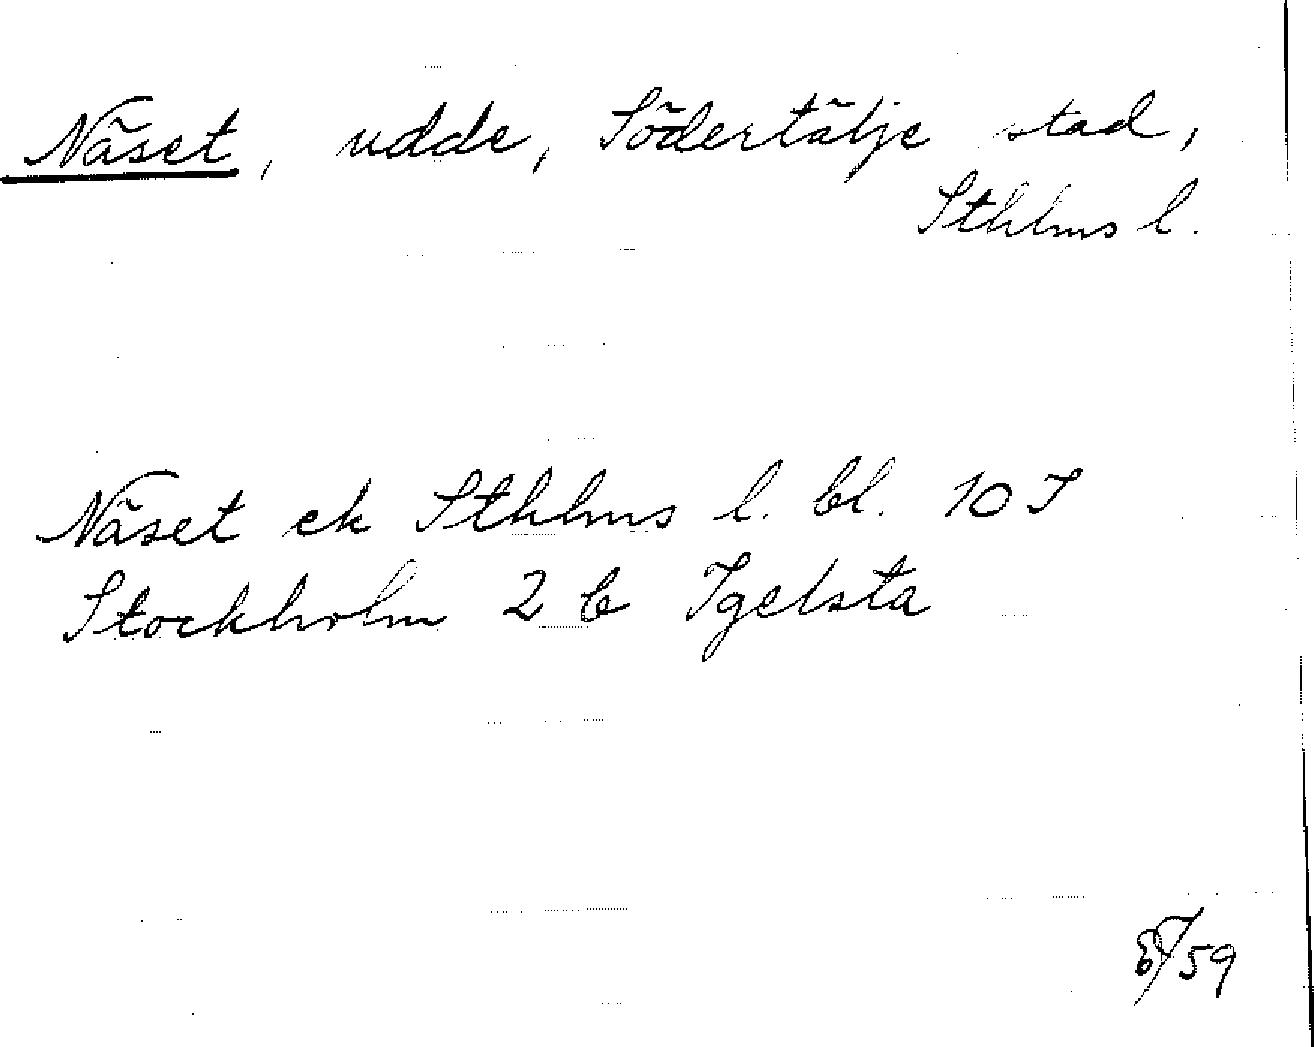 Näset, udde, Södertälje stad,
Sthlms l.
Näset ek Sthlms l. bl. 10 I
Stockholm 2 b Igelsta
59